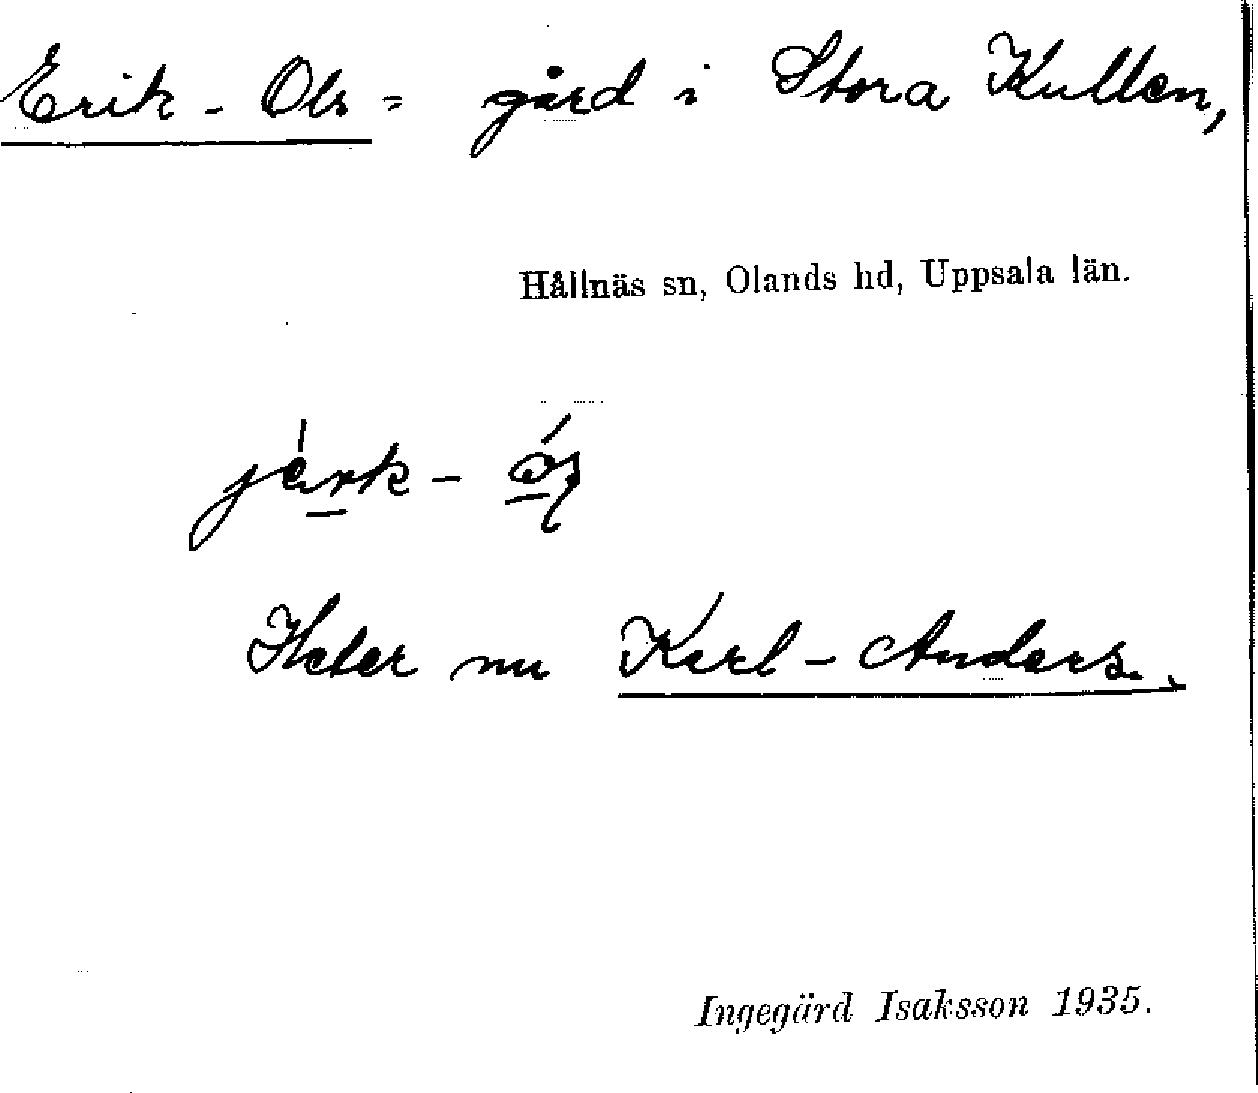 Erik-Ols = gård i Stora Kullen,
Hållnäs sn, Olands hd, Uppsala län.
Heter nu Karl-Anders.
Ingegärd Isaksson 1935.